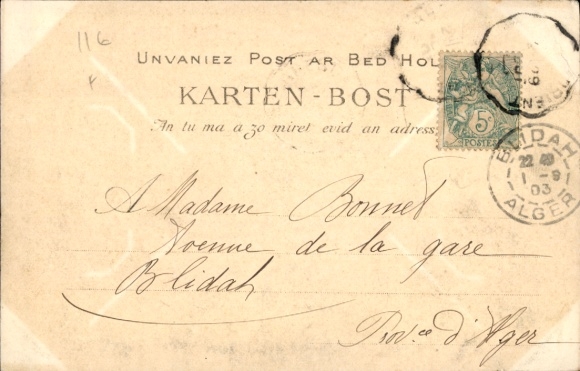 116
UNVANIEZ POST AR BED HOL
KARTEN-BOST
An tu ma a zo miret evid an adress
5c
POSTES
BLIDAH
22
1 -9
03
ALGER
A Madame Bonnet
Avenue de la gare
Blidah
Provce d'Alger